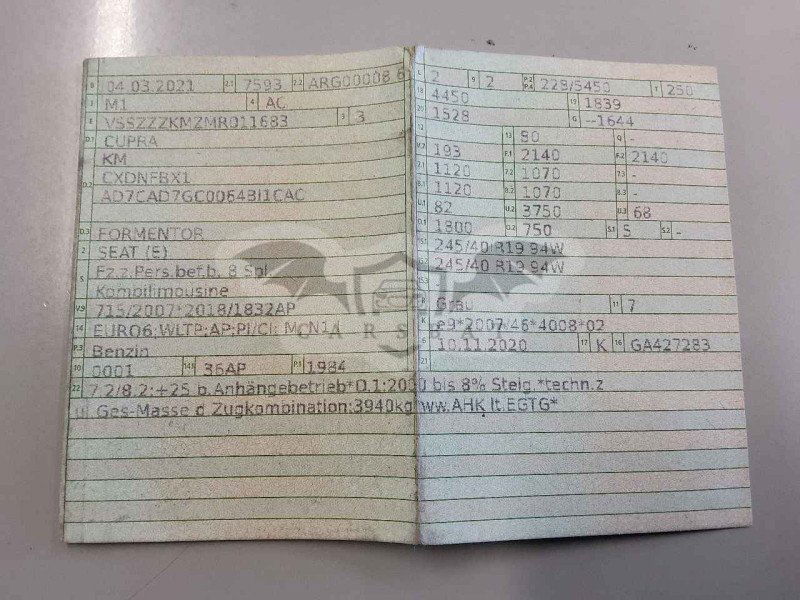 B 04.03.2021 2.1 7593 2.2 ARG00008.6
J M1 4 AC
E VSSZZZKMZMR011683 3 3
D.1 CUPRA
KM
D.2 CXDNFBX1
AD7CAD7GC0064BI1CAC
D.3 FORMENTOR
2 SEAT (E)
5 Fz.z.Pers.bef.b. 8 Spl
Kombilimousine
V.9 715/2007*2018/1832AP
14 EURO6;WLTP;AP;PI/CI; M,N1 I
P.3 Benzin
10 0001 14.1 36AP P.1 1984
22 7.2/8.2:+25 b.Anhängebetrieb*O.1:2000 bis 8% Steig.*techn.z
Ges-Masse d Zugkombination:3940kg*ww.AHK lt.EGTG*
L 2 9 2 P.2 P.4 228/5450 T 250
18 4450 19 1839
20 1528 G --1644
12 13 80 Q -
V.7 193 F.1 2140 F.2 2140
7.1 1120 7.2 1070 7.3 -
8.1 1120 8.2 1070 8.3 -
U.1 82 U.2 3750 U.3 68
O.1 1800 O.2 750 S.1 5 S.2 -
245/40 R19 94W
245/40 R19 94W
R Grau 11 7
K e9*2007/46*4008*02
6 10.11.2020 17 K 16 GA427283
21
CARS